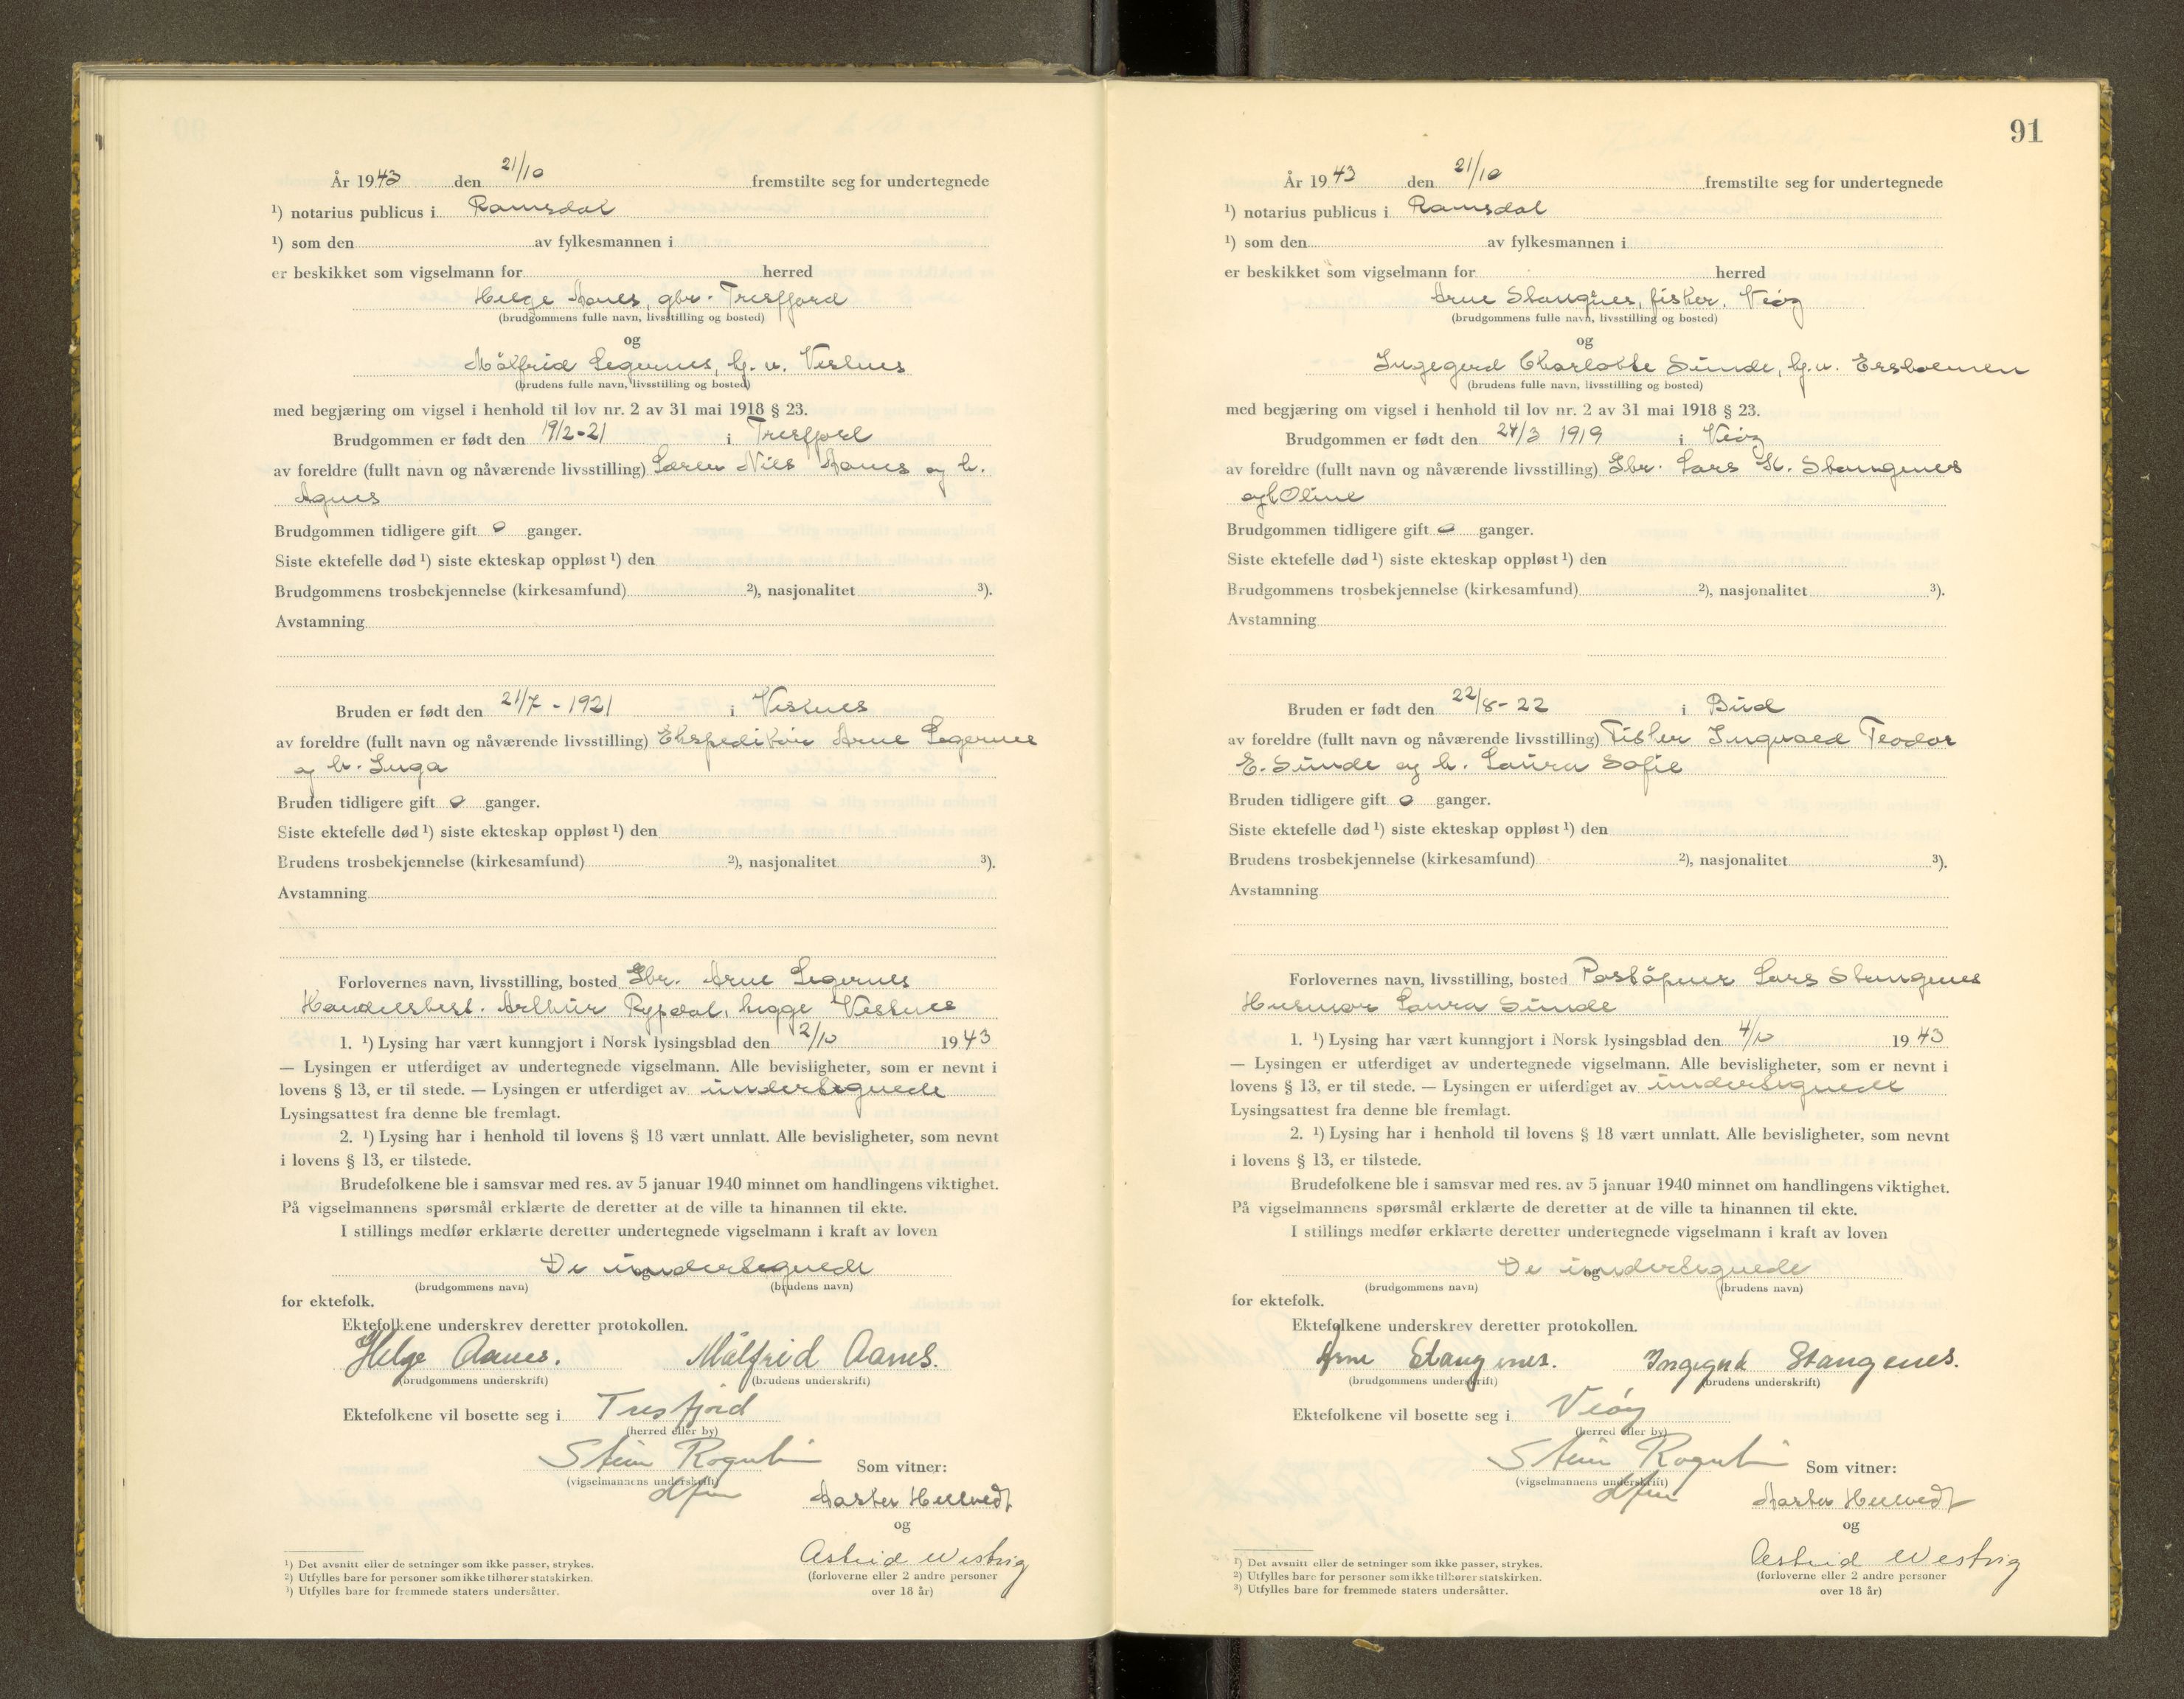 År 1943 den 21/10 fremstilte seg for undertegnede
¹) notarius publicus i Romsdal
¹) som den av fylkesmannen i
er beskikket som vigselmann for herred
Helge Aanes, gbr. Tresfjord
(brudgommens fulle navn, livsstilling og bosted)
og
Målfrid Legernes, hj. v. Vestnes
(brudens fulle navn, livsstilling og bosted)
med begjæring om vigsel i henhold til lov nr. 2 av 31 mai 1918 § 23.
Brudgommen er født den 19/2-21 i Tresfjord
av foreldre (fullt navn og nåværende livsstilling) Søren Nils Aanes og h.
Agnes
Brudgommen tidligere gift 0 ganger.
Siste ektefelle død ¹) siste ekteskap oppløst ¹) den
Brudgommens trosbekjennelse (kirkesamfund) ²), nasjonalitet ³).
Avstamning
Bruden er født den 21/7 - 1921 i Vestnes
av foreldre (fullt navn og nåværende livsstilling) Ekspeditør Arne Legernes
og h. Inga
Bruden tidligere gift 0 ganger.
Siste ektefelle død ¹) siste ekteskap oppløst ¹) den
Brudens trosbekjennelse (kirkesamfund) ²), nasjonalitet ³).
Avstamning
Forlovernes navn, livsstilling, bosted Gbr. Arne Legernes
Handelsbest. Arthur Rypdal, begge Vestnes
1. ¹) Lysing har vært kunngjort i Norsk lysingsblad den 2/10 1943
— Lysingen er utferdiget av undertegnede vigselmann. Alle bevisligheter, som er nevnt i
lovens § 13, er til stede. — Lysingen er utferdiget av undertegnede
Lysingsattest fra denne ble fremlagt.
2. ¹) Lysing har i henhold til lovens § 18 vært unnlatt. Alle bevisligheter, som nevnt
i lovens § 13, er tilstede.
Brudefolkene ble i samsvar med res. av 5 januar 1940 minnet om handlingens viktighet.
På vigselmannens spørsmål erklærte de deretter at de ville ta hinannen til ekte.
I stillings medfør erklærte deretter undertegnede vigselmann i kraft av loven
De undertegnede
og
(brudgommens navn) (brudens navn)
for ektefolk.
Ektefolkene underskrev deretter protokollen.
Helge Aanes. Målfrid Aanes.
(brudgommens underskrift) (brudens underskrift)
Ektefolkene vil bosette seg i Tresfjord
(herred eller by)
Stein Rognli
Som vitner:
(vigselmannens underskrift)
dfm
og
Astrid Westvig
¹) Det avsnitt eller de setninger som ikke passer, strykes.
²) Utfylles bare for personer som ikke tilhører statskirken.
³) Utfylles bare for fremmede staters undersåtter.
(forloverne eller 2 andre personer
over 18 år)
91
År 1943 den 21/10 fremstilte seg for undertegnede
¹) notarius publicus i Romsdal
¹) som den av fylkesmannen i
er beskikket som vigselmann for herred
Arne Stangenes, fisker, Veøy
(brudgommens fulle navn, livsstilling og bosted)
og
Ingegerd Charlotte Sunde, hj.v. Ersholmen
(brudens fulle navn, livsstilling og bosted)
med begjæring om vigsel i henhold til lov nr. 2 av 31 mai 1918 § 23.
Brudgommen er født den 24/3 1919 i Veøy
av foreldre (fullt navn og nåværende livsstilling) Gbr. Lars K. Stangenes
og h Oline
Brudgommen tidligere gift 0 ganger.
Siste ektefelle død ¹) siste ekteskap oppløst ¹) den
Brudgommens trosbekjennelse (kirkesamfund) ²), nasjonalitet ³).
Avstamning
Bruden er født den 22/8-22 i Bud
av foreldre (fullt navn og nåværende livsstilling) Fisker Ingvald Teodor
E. Sunde og h. Laura Sofie
Bruden tidligere gift 0 ganger.
Siste ektefelle død ¹) siste ekteskap oppløst ¹) den
Brudens trosbekjennelse (kirkesamfund) ²), nasjonalitet ³).
Avstamning
Forlovernes navn, livsstilling, bosted Poståpner Lars Stangenes
Husmor Laura Sunde
1. ¹) Lysing har vært kunngjort i Norsk lysingsblad den 4/10 1943
— Lysingen er utferdiget av undertegnede vigselmann. Alle bevisligheter, som er nevnt i
lovens § 13, er til stede. — Lysingen er utferdiget av undertegnede
Lysingsattest fra denne ble fremlagt.
2. ¹) Lysing har i henhold til lovens § 18 vært unnlatt. Alle bevisligheter, som nevnt
i lovens § 13, er tilstede.
Brudefolkene ble i samsvar med res. av 5 januar 1940 minnet om handlingens viktighet.
På vigselmannens spørsmål erklærte de deretter at de ville ta hinannen til ekte.
I stillings medfør erklærte deretter undertegnede vigselmann i kraft av loven
De undertegnede
og
(brudgommens navn) (brudens navn)
for ektefolk.
Ektefolkene underskrev deretter protokollen.
Arne Stangenes. Ingegerd Stangenes.
(brudgommens underskrift) (brudens underskrift)
Ektefolkene vil bosette seg i Veøy
(herred eller by)
Stein Rognli
Som vitner:
(vigselmannens underskrift)
dfm
og
Astrid Westvig
¹) Det avsnitt eller de setninger som ikke passer, strykes.
²) Utfylles bare for personer som ikke tilhører statskirken.
³) Utfylles bare for fremmede staters undersåtter.
(forloverne eller 2 andre personer
over 18 år)